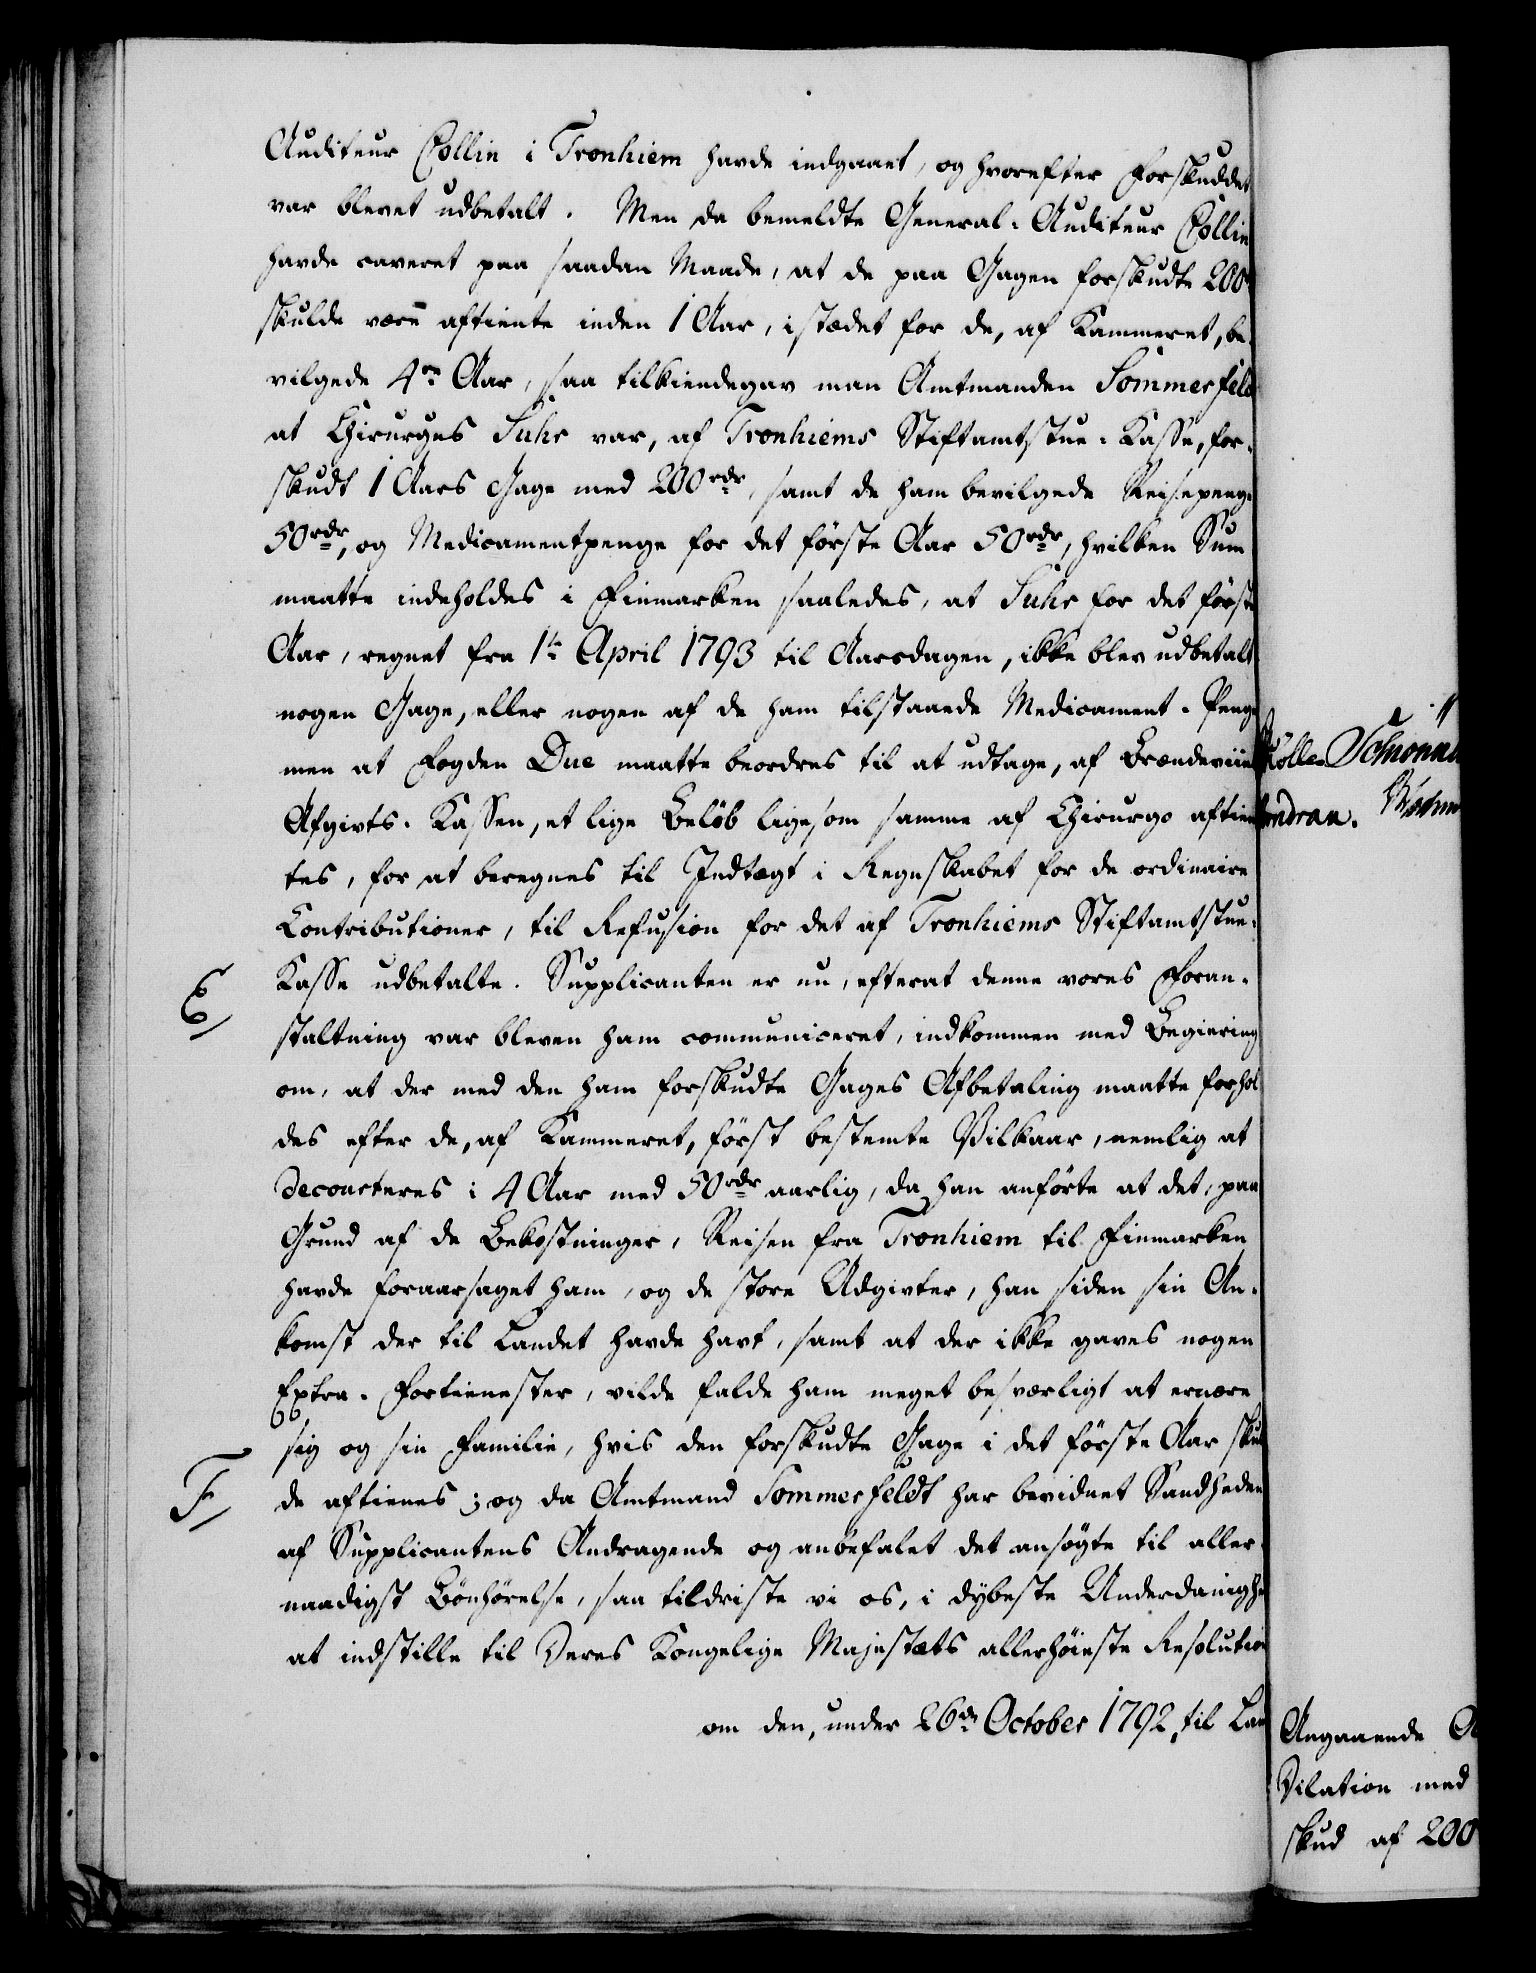 Auditeur Collin i Tronhiem havde indgaaet, og hvorefter Forskuddet
var blevet udbetalt. Men da bemeldte General-Auditeur Collin
havde caveret paa saadan Maade, at de paa Gagen forskudte 200
skulde være aftiente inden 1 Aar, istædet for de, af Kammeret, be-
vilgede 4re Aar, saa tilkiendegav man Amtmanden Sommerfeld
at Chirurgus Suhr var, af Tronhiems Stiftamtstue-Kasse, for-
skudt 1 Aars Gage med 200 rdr, samt de ham bevilgede Reisepenge
50 rdr, og Medicamentpenge for det første Aar 50 rdr, hvilken Sum
maatte indeholdes i Finmarken saaledes, at Suhr for det første
Aar, regnet fra 1te April 1793 til Aarsdagen, ikke blev udbetalt
nogen Gage, eller nogen af de ham tilstaaede Medicament-Penge
men at Fogden Due maatte beordres til at udtage, af Brændeviins
Afgivts-Kassen, et lige Beløb ligesom samme af Chirurgo aftien-
tes, for at beregnes til Indtægt i Regnskabet for de ordinaire
Contributioner, til Refusion for det af Tronhiems Stiftamtstue-
E/ Kasse udbetalte. Supplicanten er nu, efterat denne vores Foran-
staltning var bleven ham communiceret, indkommen med Begiering
om, at der med den ham forskudte Gages Afbetaling maatte forhol
des efter de, af Kammeret, først bestemte Vilkaar, nemlig at
decourteres i 4 Aar med 50 rdr aarlig, da han anførte at det, paa
Grund af de Bekostninger, Reisen fra Tronhiem til Finmarken
havde foraarsaget ham, og de store Udgivter, han siden sin An-
komst der til Landet havde havt, samt at der ikke gaves nogen
Extra-Fortienester, vilde falde ham meget besværligt at ernære
sig og sin Familie, hvis den forskudte Gage i det første Aar skul
F/ de aftienes; og da Amtmand Sommerfeldt har bevidnet Sandheden
af Supplicantens Andragende og anbefalet det ansøgte til aller-
naadigst Bønhørelse, saa tildriste vi os, i dybeste Underdanighe
at indstille til Deres Kongelige Majestæts allerhøieste Resolution
om den, under 26de October 1792, til Lan
Angaaende
Dilation med
skud af 200